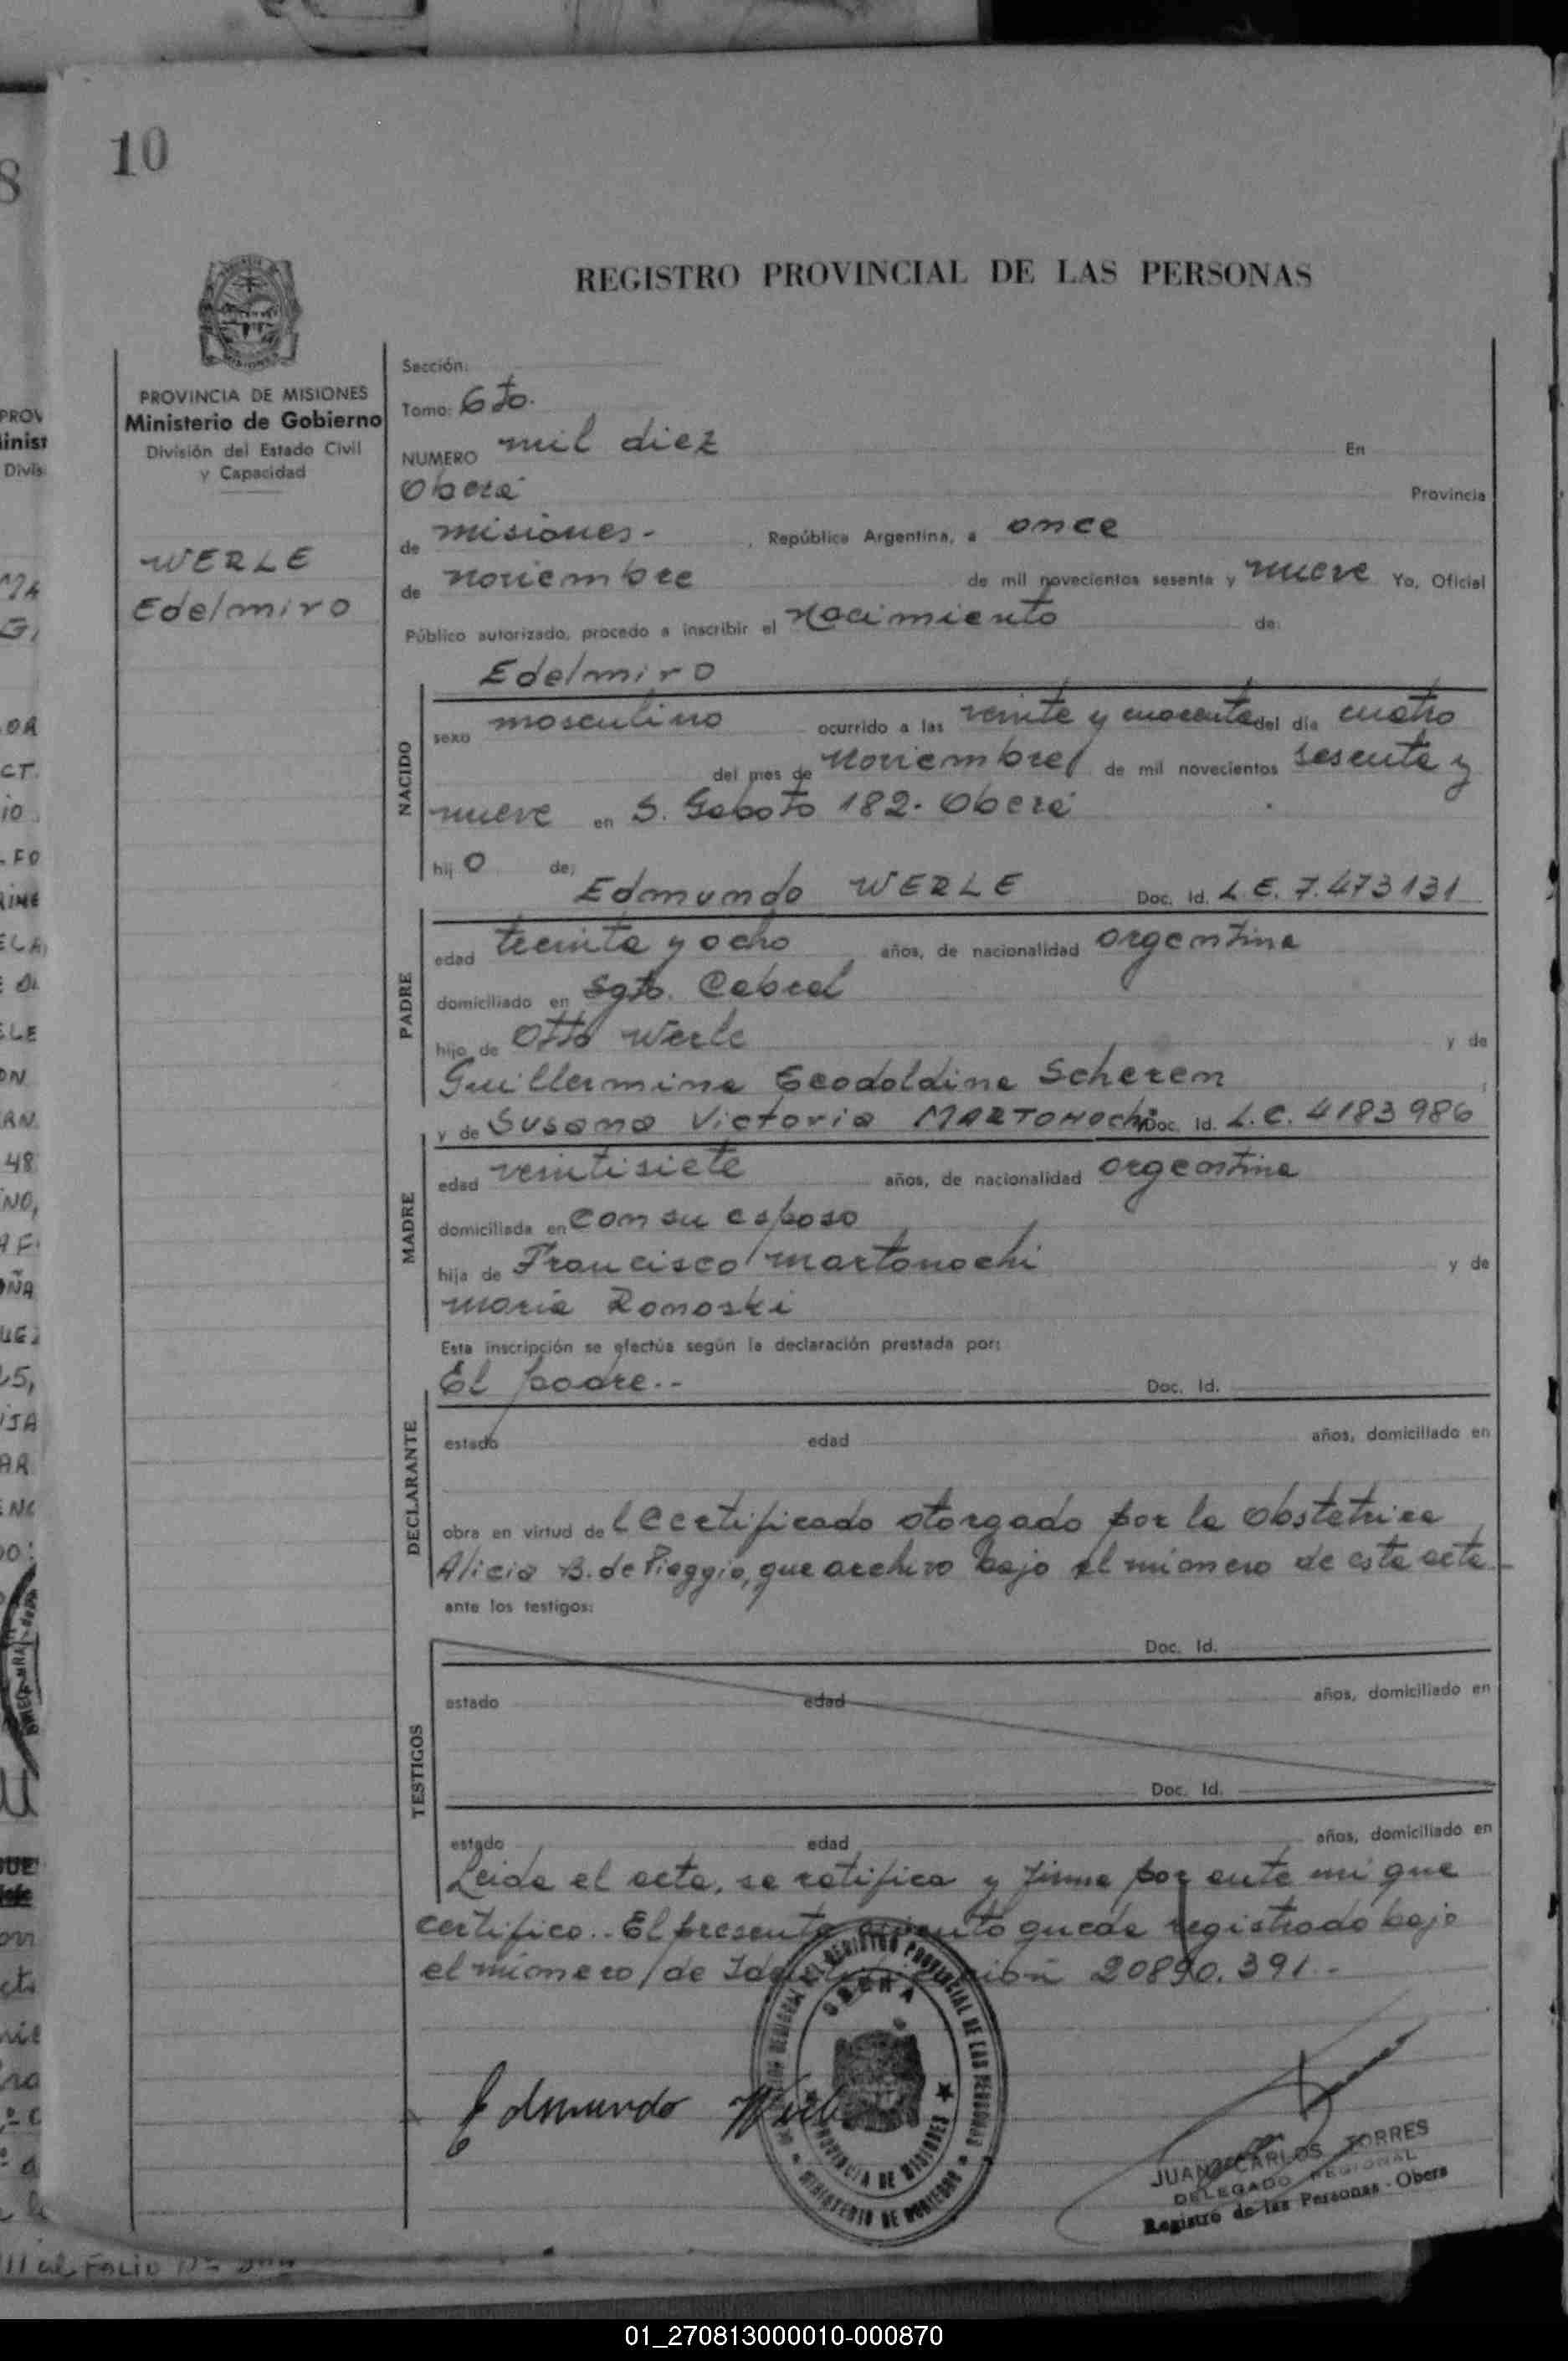 10
REGISTRO PROVINCIAL DE LAS PERSONAS
PROVINCIA DE MISIONES
Ministerio de Gobierno
División del Estado Civil
y Capacidad
WERLE
Edelmiro
Sección:
Tomo: 6to.
NUMERO mil diez En
Oberá Provincia
de misiones- , República Argentina, a once
de noviembre de mil novecientos sesenta y nueve Yo, Oficial
Público autorizado, procedo a inscribir el Nacimiento de:
Edelmiro
NACIDO
sexo masculino ocurrido a las veinte y cuarenta del día cuatro
del mes de noviembre de mil novecientos sesenta y
nueve en S. Gaboto 182. Oberá
hijo de:
Edmundo WERLE Doc. Id. L.E. 7.473131
PADRE
edad treinta y ocho años, de nacionalidad argentina
domiciliado en Sgto. Cabral
hijo de Otto Werle y de
Guillermina Teodoldina Scherem
y de Susana Victoria MARTONOCHI Doc. Id. L.C. 4183986
MADRE
edad veintisiete años, de nacionalidad argentina
domiciliada en con su esposo
hija de Francisco Martonochi y de
Maria Romoski
Esta inscripción se efectúa según la declaración prestada por:
El padre.-- Doc. Id.
DECLARANTE
estado edad años, domiciliado en
obra en virtud del certificado otorgado por la obstetrica
Alicia B. de Piaggio, que archivo bajo el número de esta acta
ante los testigos:
Doc. Id.
TESTIGOS
estado edad años, domiciliado en
Doc. Id.
estado edad años, domiciliado en
Leida el acta, se ratifica y firma por ante mi que
certifico.. El presente asiento queda registrado bajo
el número de Identificación 20890.391.-
Edmundo Werle
OBERA
PROVINCIA DE MISIONES
MINISTERIO DE GOBIERNO
JUAN CARLOS TORRES
DELEGADO REGIONAL
Registro de las Personas - Obera
01_270813000010-000870